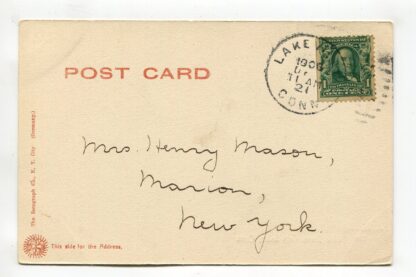 POST CARD
LAKE
1906
11 AM
CONN
1
Mrs. Henry Mason,
Marion,
New York.
The Rotograph Co., N. Y. City (Germany)
This side for the Address.